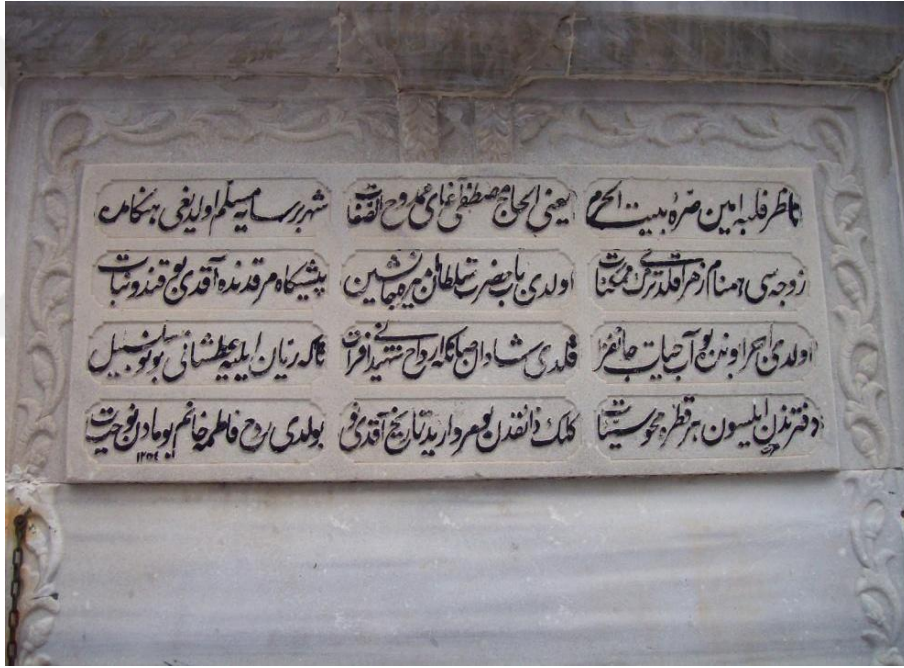 ناظر قلبه امین صره بیت الحرم یعنی الحاج مصطفی آغای ممدوح الصفات شهر برسایه مسلم اولدیغی هنکامده
زوجه سی همنام زهرا قلدی ترك ممکنات اولدی باب حضرت سلطان امیره جانشین پیشکاه مرقدنده آقدی بو قند و نبات
اولدی اجرا اوندن بو آب حیات جانفزا قلدی شادان صانکه ارواح شهیدانی فرات تاکه ریان ایلیه عطشانی بو نو سلسبیل
دفترندن ایلسون هر قطره محو سیئات کلك بو مروارید تاریخ آقدی نو بولدی روح فاطمه خانم بو مادن نو حیات
١٢٥٤